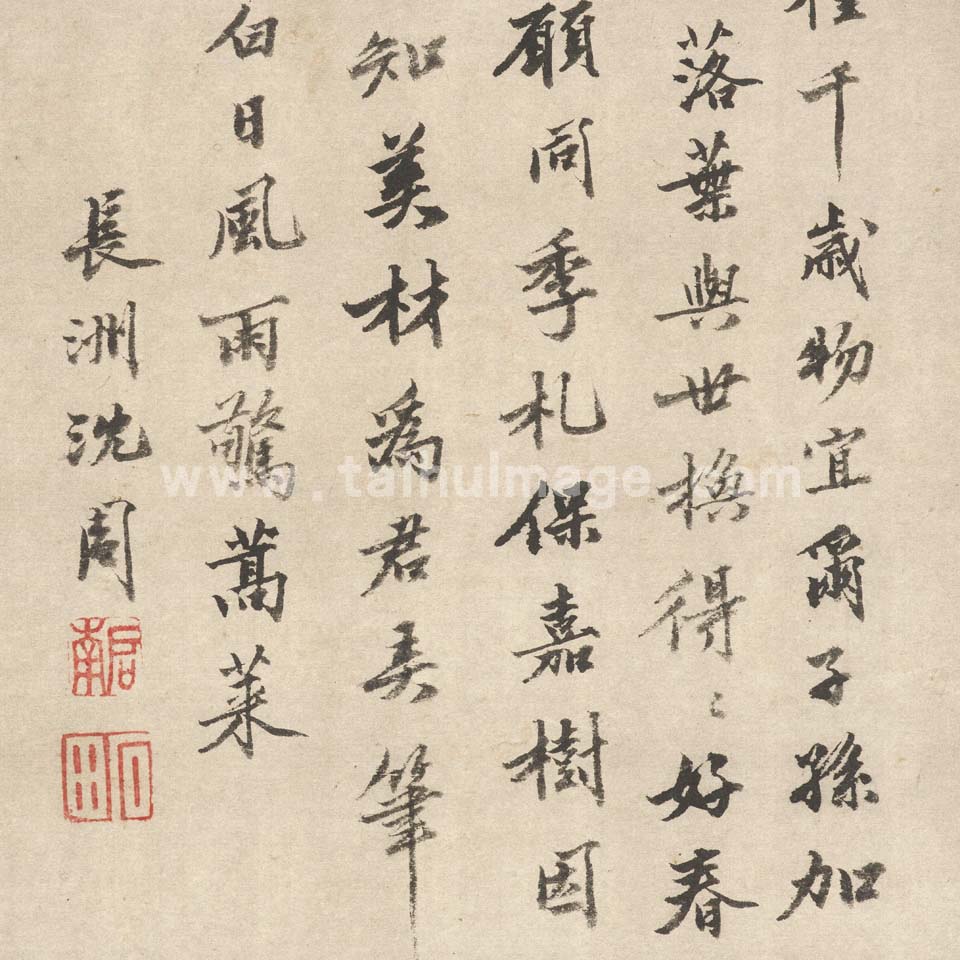 千歲物宜爾子孫加
落葉與世換得〻好春
願同季札保嘉樹因
知美材爲君弄筆
白日風雨驚蒿萊
長洲沈周
啓南
石田
www.taihuimage.com